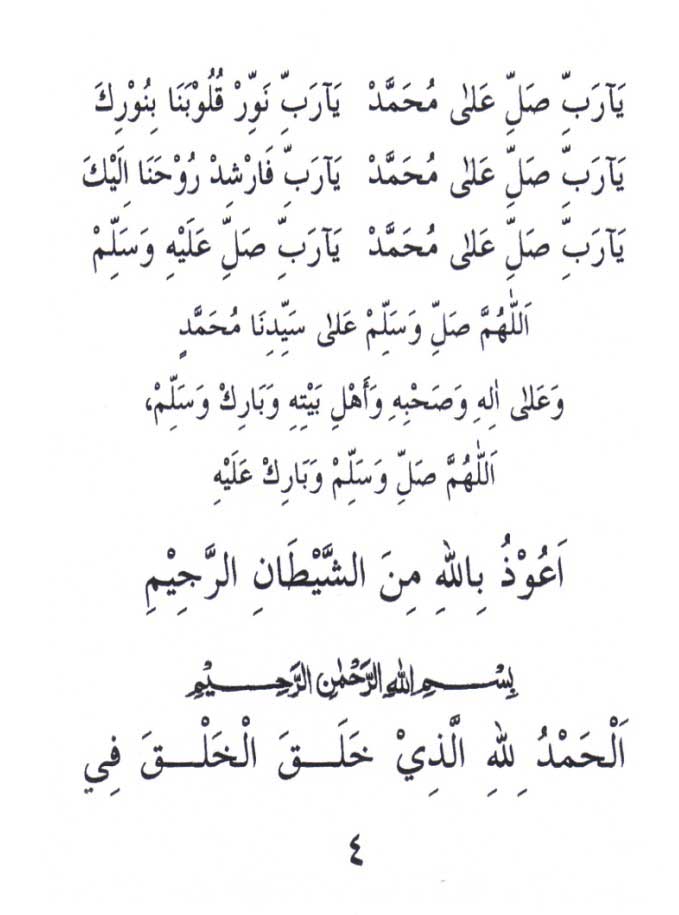 يَآرَبِّ صَلِّ عَلٰى مُحَمَّدْ يَآرَبِّ نَوِّرْ قُلُوْبَنَا بِنُوْرِكَ
يَآرَبِّ صَلِّ عَلٰى مُحَمَّدْ يَآرَبِّ فَارْشِدْ رُوْحَنَا اِلَيْكَ
يَآرَبِّ صَلِّ عَلٰى مُحَمَّدْ يَآرَبِّ صَلِّ عَلَيْهِ وَسَلِّمْ
اَللّٰهُمَّ صَلِّ وَسَلِّمْ عَلٰى سَيِّدِنَا مُحَمَّدٍ
وَعَلٰى اٰلِهِ وَصَحْبِهِ وَأَهْلِ بَيْتِهِ وَبَارِكْ وَسَلِّمْ،
اَللّٰهُمَّ صَلِّ وَسَلِّمْ وَبَارِكْ عَلَيْهِ
اَعُوْذُ بِاللهِ مِنَ الشَّيْطَانِ الرَّجِيْمِ
بِسْــمِ اللهِ الرَّحْمٰنِ الرَّحِــيْمِ
اَلْحَمْدُ لِلهِ الَّذِيْ خَلَــقَ الْخَلْــقَ فِي
٤